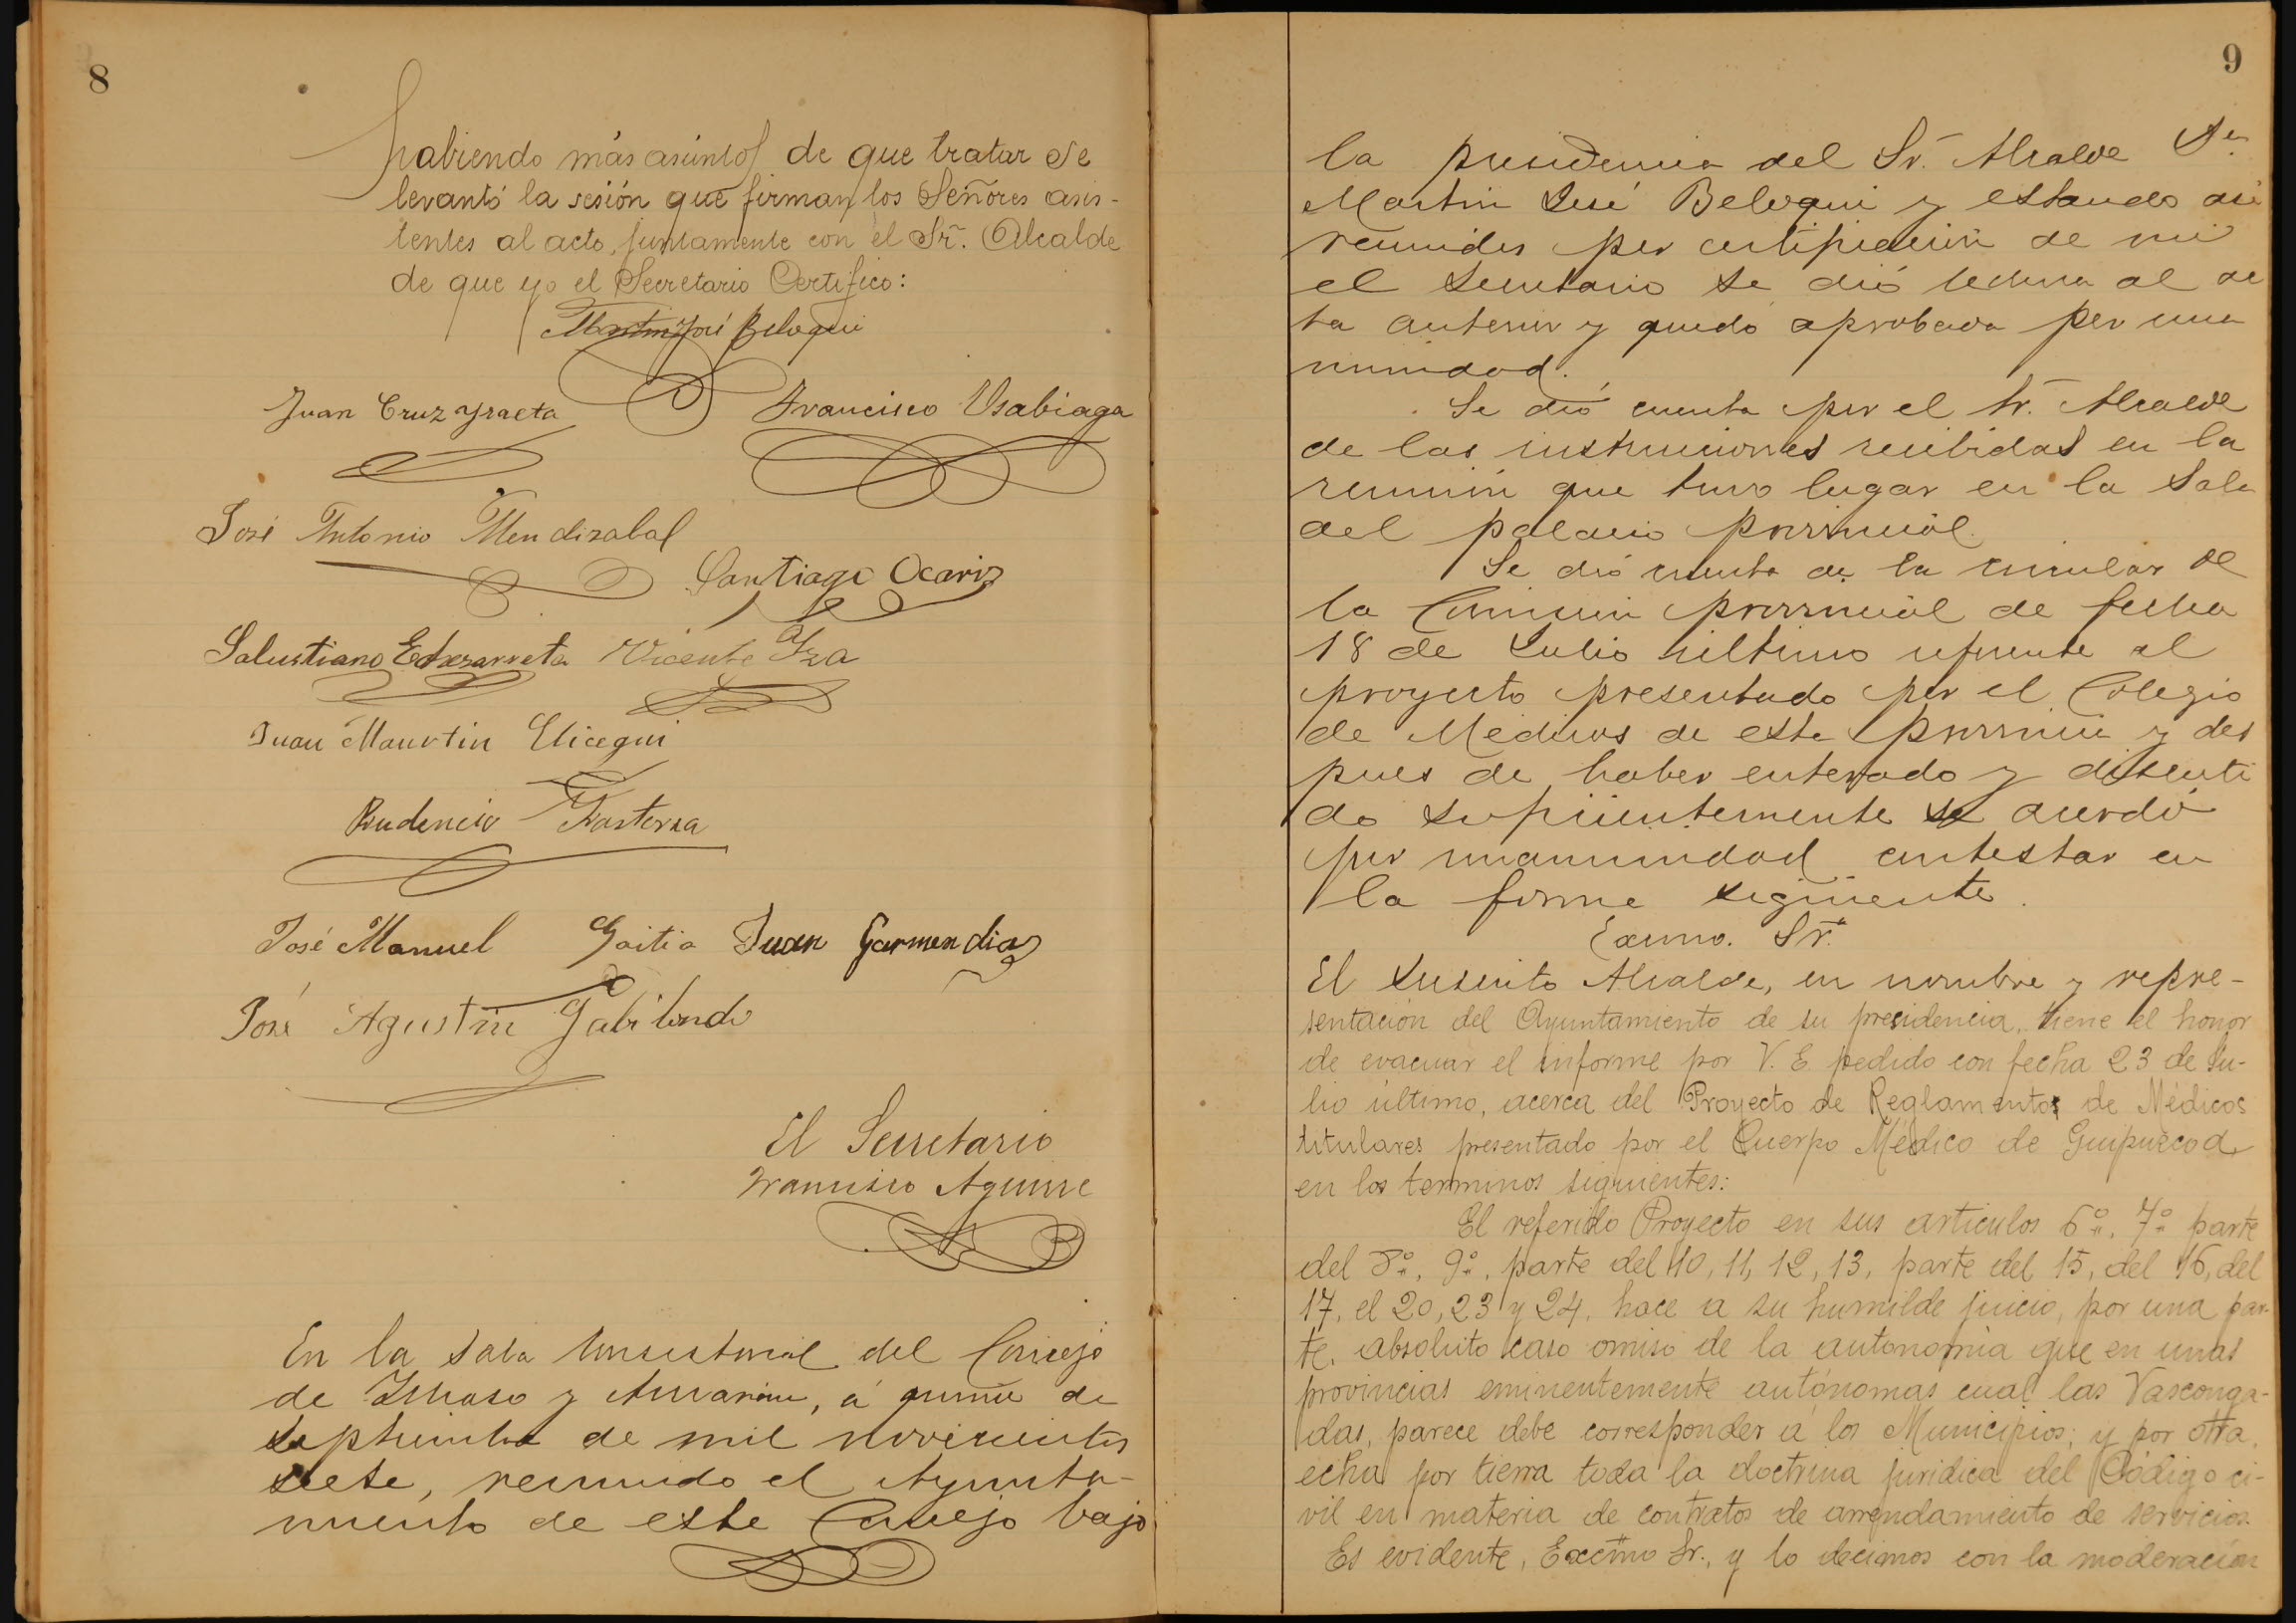 8
habiendo más asuntos de que tratar se
levantó la sesión que firman los Señores asis-
tentes al acto, juntamente con el Sr. Alcalde
de que yo el Secretario Certifico:
Martin José Beloqui
Juan Cruz Yraeta Francisco Usabiaga
José Antonio Mendizabal
Santiago Ocariz
Salustiano Echezarreta Vicente Yza
Juan Martin Elicegui
Prudencio
José Manuel Goitia Juan Garmendia
José Agustin Gabilondo
El Secretario
Francisco Aguirre
En la sala Consistorial del Concejo
de Ichaso y Arriarán, á quince de
septiembre de mil novecientos
siete, reunido el Ayunta-
miento de este Concejo bajo
9
la presidencia del Sr. Alcalde Dn
Martin José Beloqui y estando asi
reunidos por certificación de mi
el Secretario se dió lectura al ac
ta anterior y quedó aprobada por una
nimidad.
Se dió cuenta por el Sr. Alcalde
de las instrucciones recibidas en la
reunión que tuvo lugar en la Sala
del palacio provincial.
Se dió cuenta de la circular de
la Comisión provincial de fecha
18 de Julio último referente al
proyecto presentado por el Colegio
de Médicos de esta provincia y des
pues de haber enterado y discuti
do suficientemente se acordó
por unanimidad contestar en
la forma siguiente.
Excmo. Sr.
El suscrito Alcalde, en nombre y repre-
sentación del Ayuntamiento de su presidencia, tiene el honor
de evacuar el informe por V. E. pedido con fecha 23 de Ju-
lio último, acerca del Proyecto de Reglamentos de Médicos
titulares presentado por el Cuerpo Médico de Guipúzcoa,
en los terminos siguientes:
El referido Proyecto en sus articulos 6º, 7º parte
del 8º, 9º, parte del 10, 11, 12, 13, parte del 15, del 16, del
17, el 20, 23 y 24, hace a su humilde juicio, por una par-
te, absoluto caso omiso de la autonomía que en unas
provincias eminentemente autónomas cual las Vasconga-
das, parece debe corresponder á los Municipios; y por otra,
echa por tierra toda la doctrina juridica del Código ci-
vil en materia de contratos de arrendamiento de servicios.
Es evidente, Excmo Sr., y lo decimos con la moderación